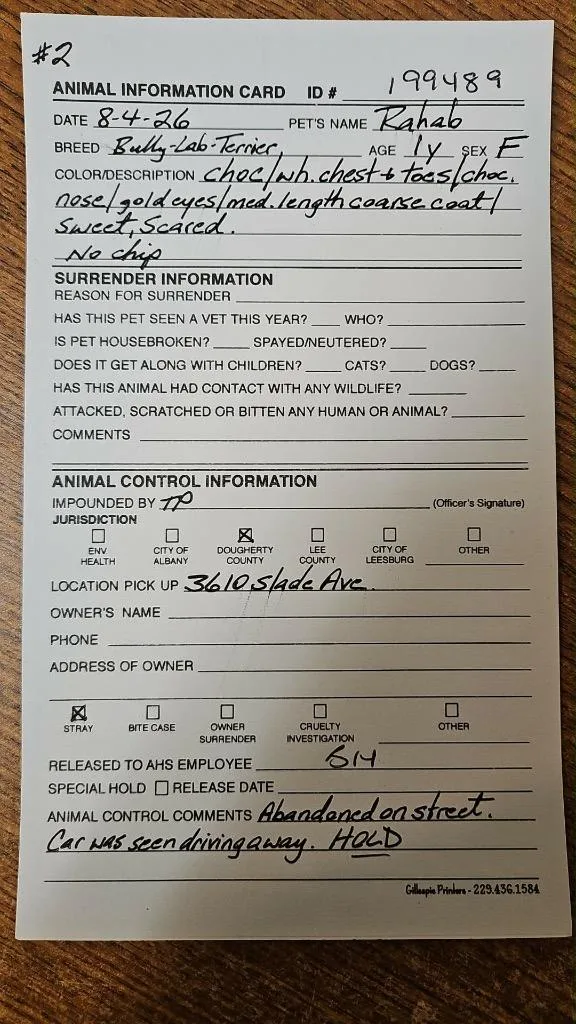 #2
ANIMAL INFORMATION CARD ID # 199489
DATE 8-4-26 PET'S NAME Rahab
BREED Bully-Lab-Terrier, AGE 1y SEX F
COLOR/DESCRIPTION choc/wh. chest + toes/choc.
nose/gold eyes/med. length coarse coat/
Sweet, Scared.
No chip
SURRENDER INFORMATION
REASON FOR SURRENDER
HAS THIS PET SEEN A VET THIS YEAR? WHO?
IS PET HOUSEBROKEN? SPAYED/NEUTERED?
DOES IT GET ALONG WITH CHILDREN? CATS? DOGS?
HAS THIS ANIMAL HAD CONTACT WITH ANY WILDLIFE?
ATTACKED, SCRATCHED OR BITTEN ANY HUMAN OR ANIMAL?
COMMENTS
ANIMAL CONTROL INFORMATION
IMPOUNDED BY TP (Officer's Signature)
JURISDICTION
ENV HEALTH CITY OF ALBANY DOUGHERTY COUNTY LEE COUNTY CITY OF LEESBURG OTHER
LOCATION PICK UP 3610 Slade Ave.
OWNER'S NAME
PHONE
ADDRESS OF OWNER
STRAY BITE CASE OWNER SURRENDER CRUELTY INVESTIGATION OTHER
RELEASED TO AHS EMPLOYEE
SPECIAL HOLD RELEASE DATE
ANIMAL CONTROL COMMENTS Abandoned on street.
Car was seen driving away. HOLD
Gillespie Printers - 229.436.1584